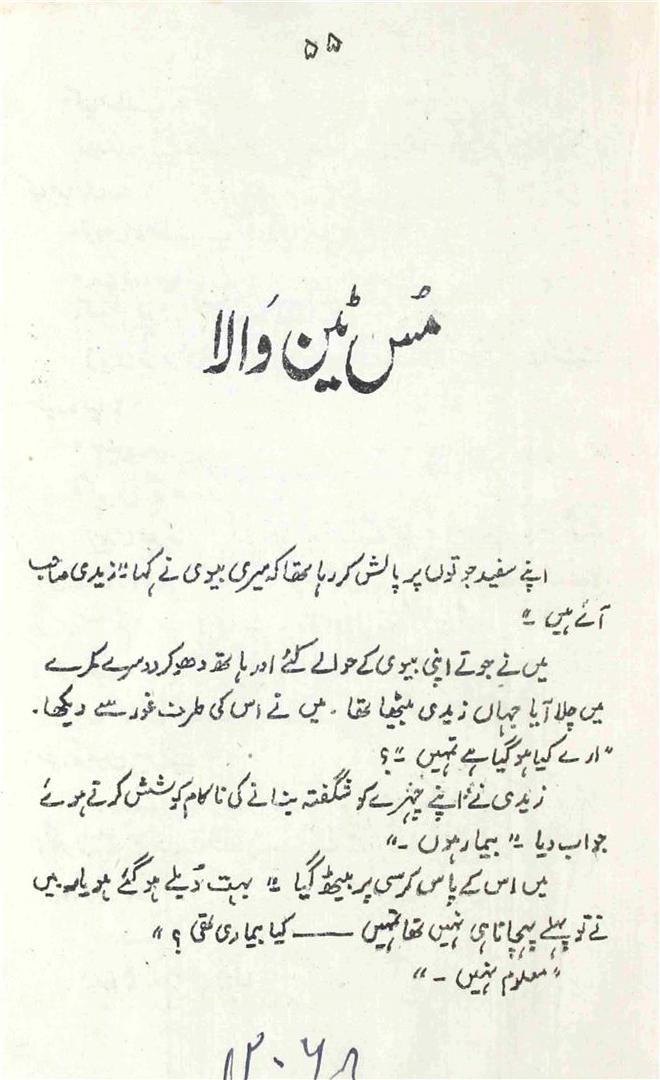 ۵۵
مُس ٹین وَالا
اپنے سفید جوتوں پر پالش کر رہا تھا کہ میری بیوی نے کہا "زیدی صاحب
آئے ہیں ۔"
میں نے جوتے اپنی بیوی کے حوالے کئے اور ہاتھ دھو کر دوسرے کمرے
میں چلا آیا جہاں زیدی بیٹھا تھا ۔ میں نے اس کی طرف غور سے دیکھا۔
"ارے کیا ہو گیا ہے تمہیں ۔"؟
زیدی نے اپنے چہرے کو شگفتہ بنانے کی ناکام کوشش کرتے ہوئے
جواب دیا ۔" بیمار ہوں ۔"
میں اس کے پاس کرسی پر بیٹھ گیا ۔" بہت دُبلے ہو گئے ہو یار۔ میں
نے تو پہلے پہچانا ہی نہیں تھا تمہیں ——— کیا بیماری تھی ؟"
"معلوم نہیں ۔"
۱۳۰۶۸